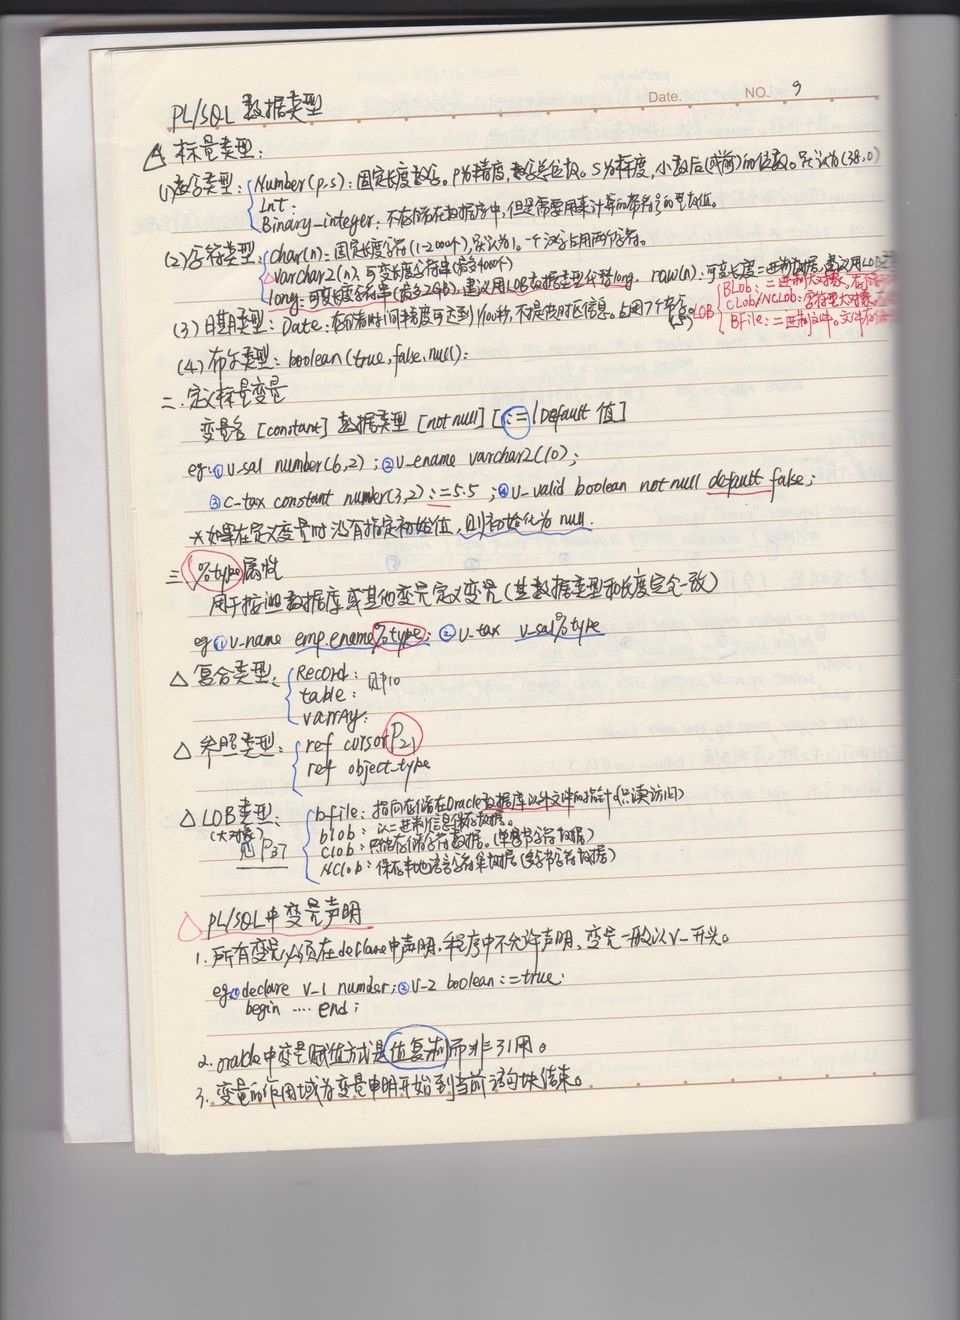 Date. NO. 9
PL/SQL 数据类型
△ 标量类型：
(1) 数字类型：Number(p,s)：固定长度数字。P为精度，数字总位数。S为标度，小数后(或前)的位数。默认为(38,0)
Int：
Binary_integer：不存储在数据库中，但是需要用来计算的带符号的整数值。
(2) 字符类型：char(n)：固定长度字符(1-2000个)，默认为1。一个汉字占用两个字符。
△ varchar2(n)：可变长度字符串(最多4000个)
long：可变长度字符串(最多2GB)。建议用LOB数据类型代替long. row(n)：可变长度二进制数据，建议用LOB
LOB BLob：二进制大对象，
CLob/NCLob：字符型大对象。
BFile：二进制文件。文件存
(3) 日期类型：Date：存储者时间精度可达到1/100秒，不提供时区信息。占用7个字节
(4) 布尔类型：boolean (true, false, null)：
二、定义标量变量
变量名 [constant] 数据类型 [not null] [:= | Default 值]
eg. ①v_sal number(6,2)；②v_ename varchar2(10)；
③c-tax constant number(3,2) := 5.5；④v_valid boolean not null default false；
*如果在定义变量时没有指定初始值，则初始化为 null.
三、%type 属性
用于按照数据库或其他变量定义变量(其数据类型和长度完全一致)
eg ①v_name emp.ename%type；②v_tax v_sal%type
△ 复合类型：Record：
table： 见P10
varray：
△ 参照类型：ref cursor P21
ref object_type
△ LOB类型：bfile：指向存储在Oracle数据库以外文件的指针(只读访问)
(大对象) blob：以二进制信息保存数据。
见 P37 Clob：只能存储字符数据。(单字节字符数据)
NClob：保存本地语言字符集数据(多字节字符数据)
△ PL/SQL中变量声明
1. 所有变量必须在declare中声明，程序中不允许声明，变量一般以v_开头。
eg ①declare v-1 number；②v-2 boolean := true；
begin .... end；
2. oracle中变量赋值方式是值复制而非引用。
3. 变量的作用域为变量申明开始到当前语句块结束。